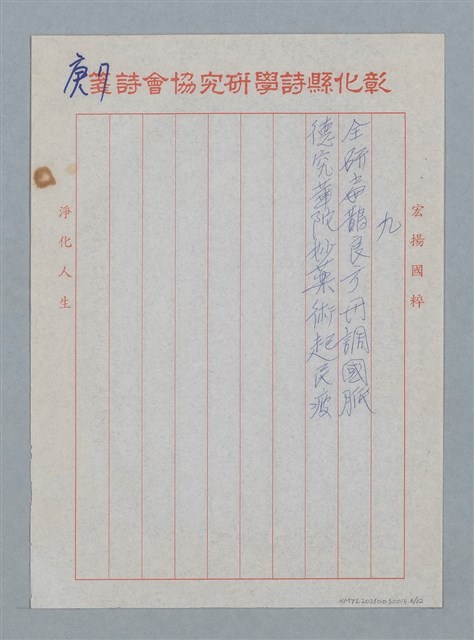 彰化縣詩學研究協會詩箋
庚
宏揚國粹
九
全研扁鵲良方丹調國脈
德究華陀妙藥術起民疲
淨化人生